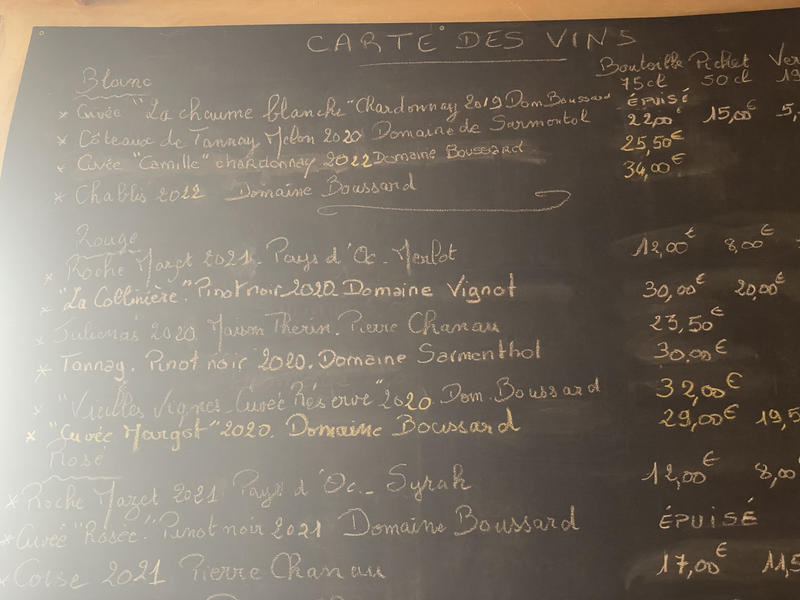 CARTE DES VINS
Bouteille Pichet Ver
75cl 50cl 19
Blanc
x Cuvée "La chaume blanche" Chardonnay 2019 Dom Boussard ÉPUISÉ
x Côteaux de Tannay Melon 2020 Domaine de Sarmentol 22,00€ 15,00€ 5,
x Cuvée "Camille" chardonnay 2022 Domaine Boussard 25,50€
x Chablis 2022 Domaine Boussard 34,00€
Rouge
x Roche Mazet 2021. Pays d'Oc. Merlot 12,00€ 8,00€
x "La Collinière". Pinot noir 2020. Domaine Vignot 30,00€ 20,00€
x Julienas 2020. Maison Therin. Pierre Chanau 23,50€
x Tannay. Pinot noir 2020. Domaine Sarmenthol 30,00€
x "Vieilles Vignes. Cuvée Réserve" 2020. Dom. Boussard 32,00€
x "Cuvée Margot" 2020. Domaine Boussard 29,00€ 19,5
Rosé
x Roche Mazet 2021 Pays d'Oc - Syrah 12,00€ 8,00
x Cuvée "Rosée". Pinot noir 2021 Domaine Boussard ÉPUISÉ
x Corse 2021 Pierre Chanau 17,00€ 11,5